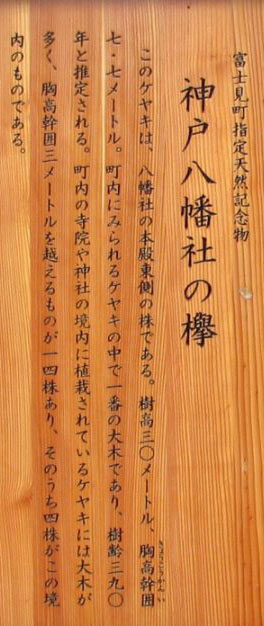 富士見町指定天然記念物
神戸八幡社の欅
このケヤキは、八幡社の本殿東側の株である。樹高三〇メートル、胸高幹囲
きょうこうかんい
七・七メートル。町内にみられるケヤキの中で一番の大木であり、樹齢三九〇
年と推定される。町内の寺院や神社の境内に植栽されているケヤキには大木が
多く、胸高幹囲三メートルを越えるものが一四株あり、そのうち四株がこの境
内のものである。